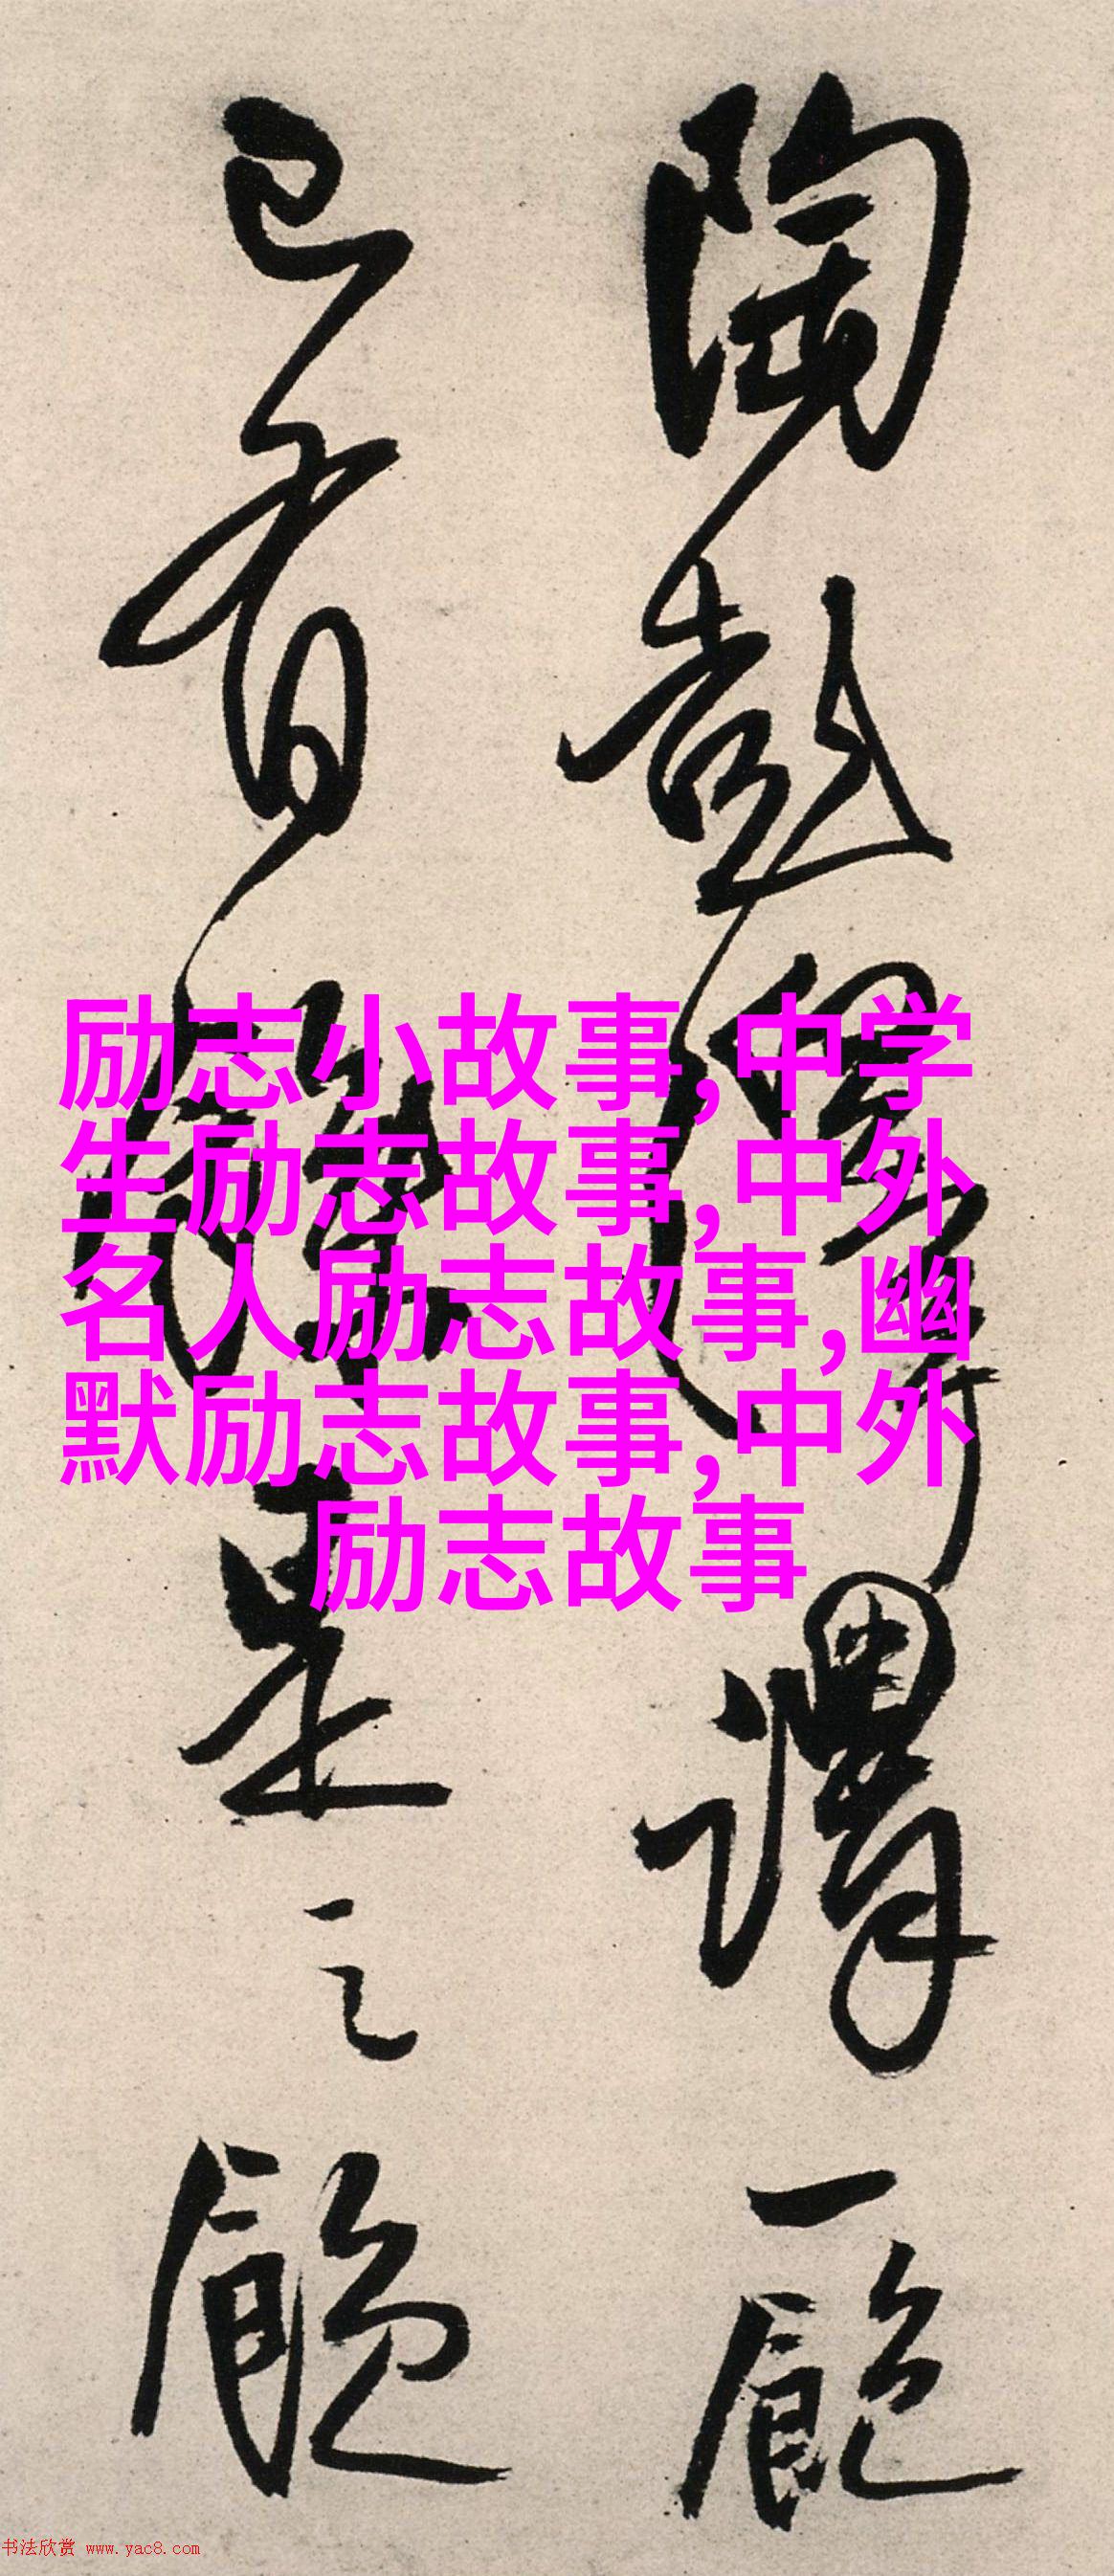 陶彭澤謂一
已有是之
励志小故事,中学
生励志故事,中外
名人励志故事,幽
默励志故事,中外
励志故事
书法欣赏 www.yac8.com